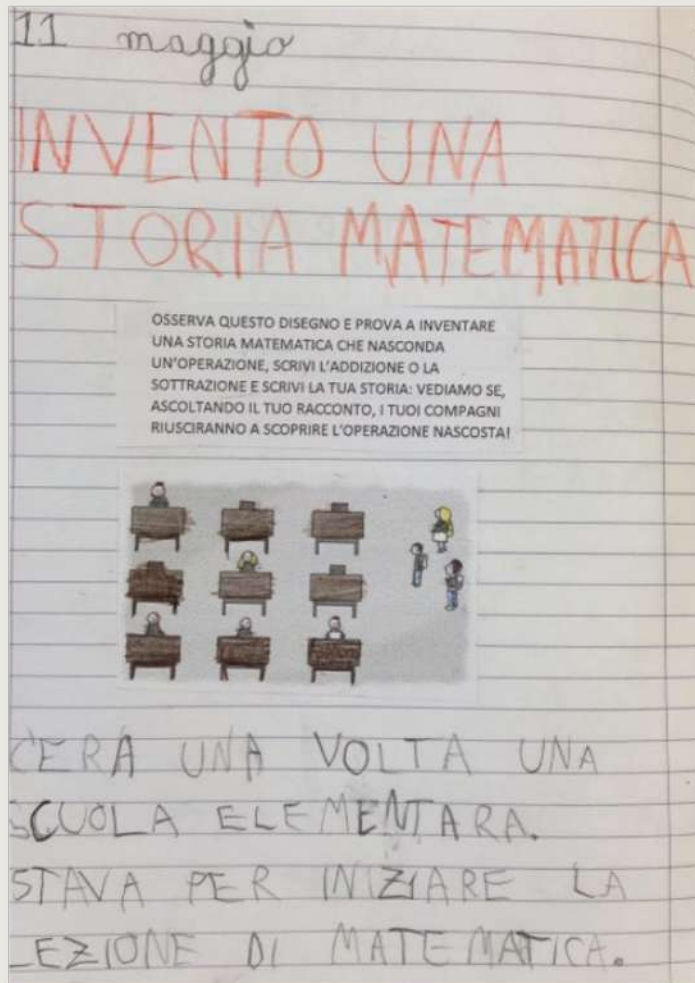 11 maggio
INVENTO UNA
STORIA MATEMATICA
OSSERVA QUESTO DISEGNO E PROVA A INVENTARE
UNA STORIA MATEMATICA CHE NASCONDA
UN'OPERAZIONE, SCRIVI L'ADDIZIONE O LA
SOTTRAZIONE E SCRIVI LA TUA STORIA: VEDIAMO SE,
ASCOLTANDO IL TUO RACCONTO, I TUOI COMPAGNI
RIUSCIRANNO A SCOPRIRE L'OPERAZIONE NASCOSTA!
C'ERA UNA VOLTA UNA
SCUOLA ELEMENTARA.
STAVA PER INIZIARE LA
LEZIONE DI MATEMATICA.